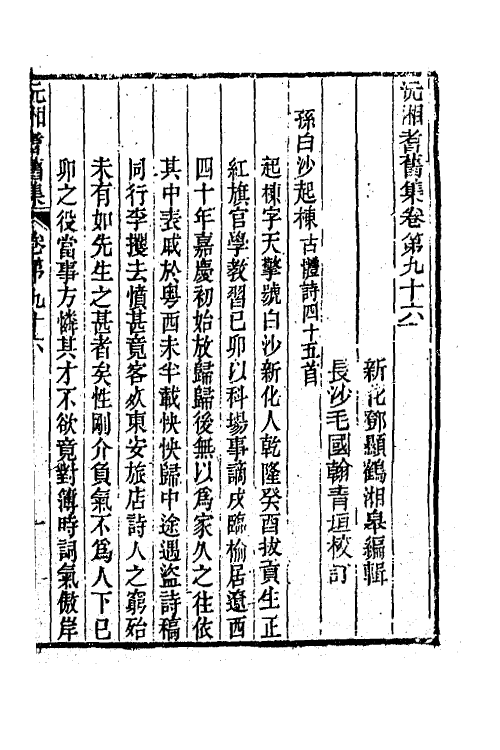 沅湘耆舊集卷第九十六
新化鄧顯鶴湘臯編輯
長沙毛國翰青垣校訂
孫白沙起楝古體詩四十五首
起楝字天擎號白沙新化人乾隆癸酉拔貢生正
紅旗官學教習己卯以科場事謫戍臨榆居遼西
四十年嘉慶初始放歸歸後無以爲家久之往依
其中表戚於粵西未半載怏怏歸中途遇盜詩稿
同行李攫去憤甚竟客死東安旅店詩人之窮殆
未有如先生之甚者矣性剛介負氣不爲人下己
卯之役當事方憐其才不欲竟對簿時詞氣傲岸
沅湘耆舊集
卷第九十六
一